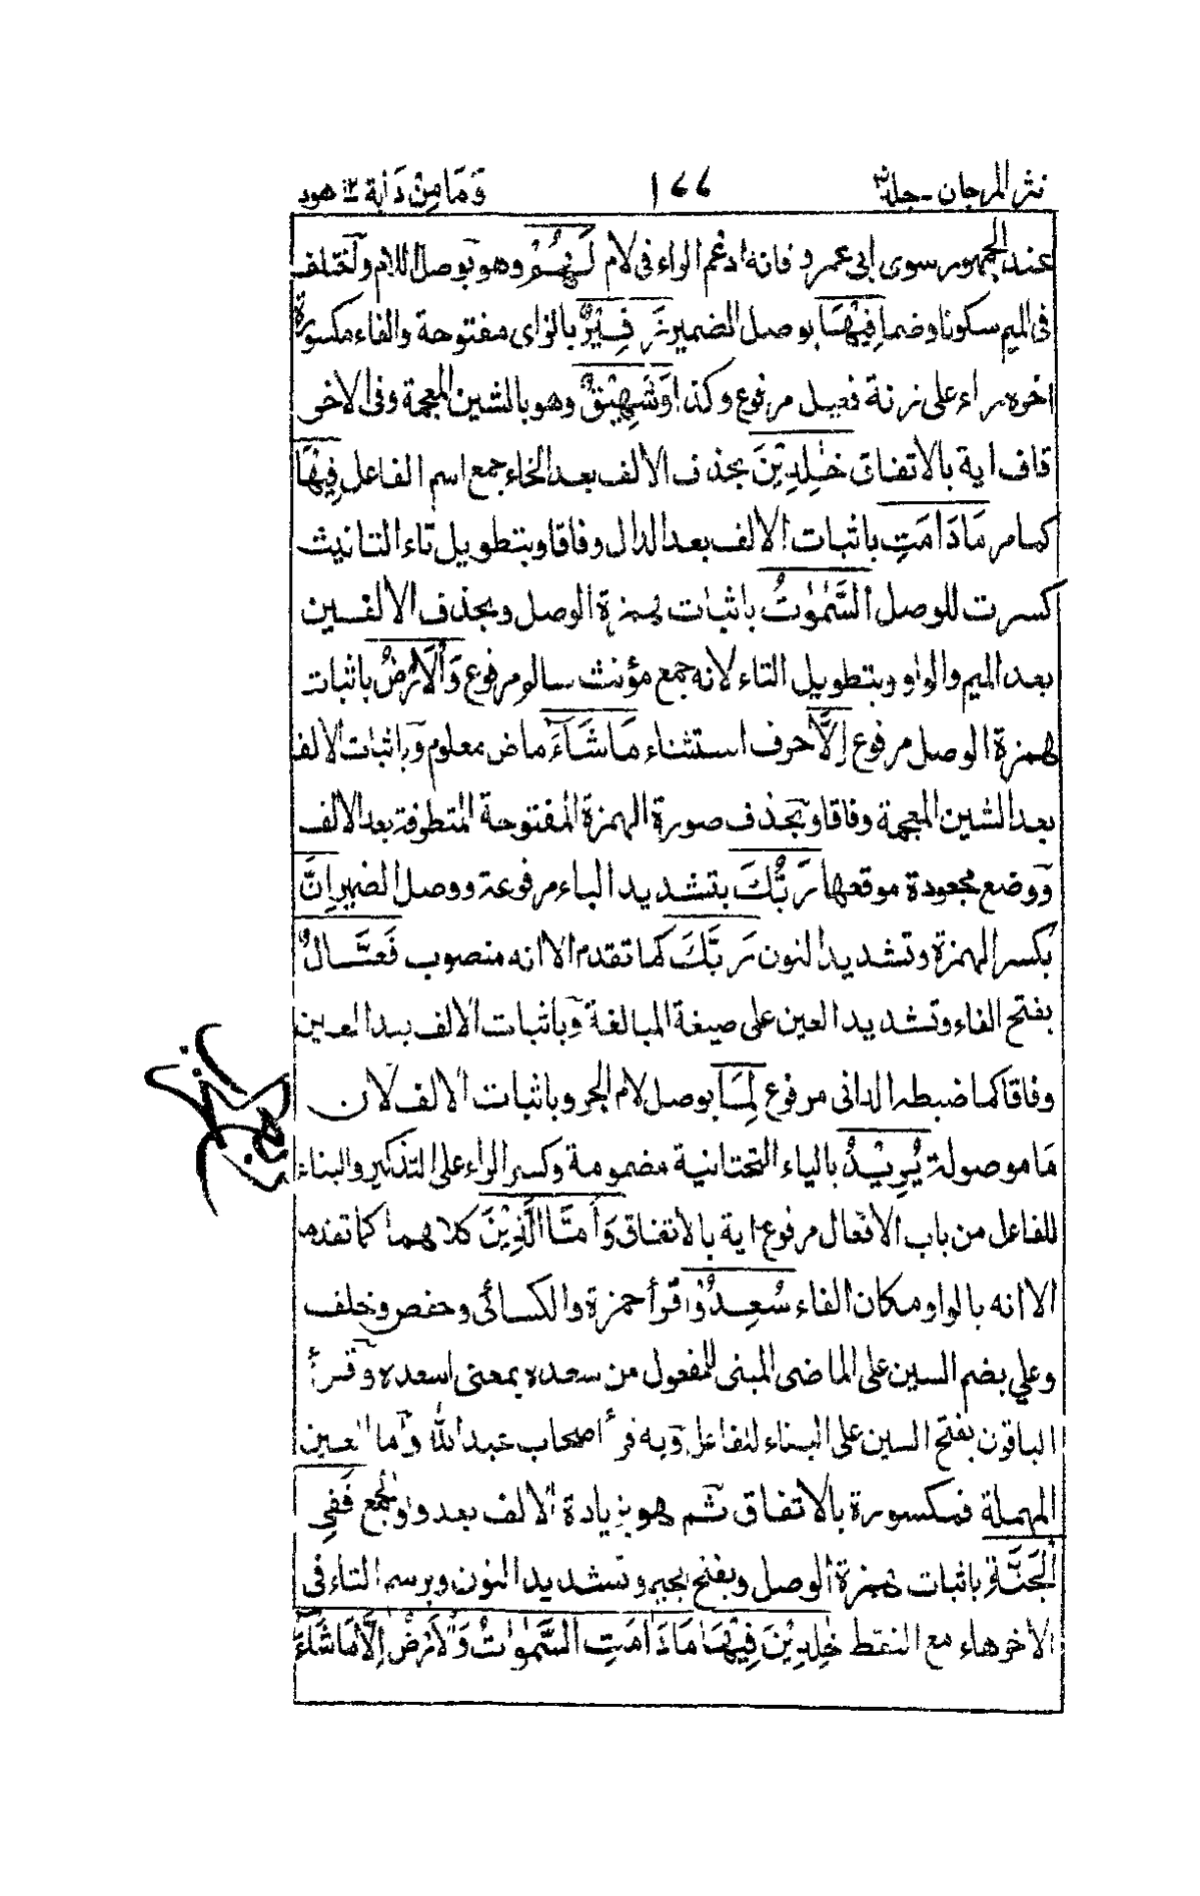 نثر المرجان - جلد ٣ ١٧٧ وَمَا مِنْ دَابة ١٢ هود
عند الجمهور سوى ابى عمرو فانه ادغم الراء فى لام لَهُمْ وهو بوصل اللام واختلف
فى الميم سكونا وضما فِيْهَا بوصل الضمير زَفِيْرٌ بالزاى مفتوحة والفاء مكسورة
اخره راء على زنة فعيل مرفوع وكذا وَشَهِيْقٌ وهو بالشين المعجمة وفى الاخر
قاف اية بالاتفاق خٰلِدِيْنَ بحذف الالف بعد الخاء جمع اسم الفاعل فِيْهَا
كما مر مَادَامَتِ باثبات الالف بعد الدال وفاقا وبتطويل تاء التانيث
كسرت للوصل السَّمٰوٰتُ باثبات همزة الوصل وبحذف الالفين
بعد الميم والواو وبتطويل التاء لانه جمع مؤنث سالم مرفوع وَالْاَرْضُ باثبات
همزة الوصل مرفوع اِلَّا حرف استثناء مَاشَآءَ ماض معلوم وباثبات الالف
بعد الشين المعجمة وفاقا وبحذف صورة الهمزة المفتوحة المتطرفة بعد الالف
ووضع مجعودة موقعها رَبُّكَ بتشديد الباء مرفوعة ووصل الضمير اِنَّ
بكسر الهمزة وتشديد النون رَبَّكَ كما تقدم الا انه منصوب فَعَّالٌ
بفتح الفاء وتشديد العين على صيغة المبالغة وباثبات الالف بعد العين
وفاقا كما ضبطه الدانى مرفوع لِمَا بوصل لام الجر وباثبات الالف لان
مَا موصولة يُرِيْدُ بالياء التحتانية مضمومة وكسر الراء على التذكير والبناء
للفاعل من باب الافعال مرفوع اية بالاتفاق وَاَمَّا الَّذِيْنَ كلاهما كما تقدم
الا انه بالواو مكان الفاء سُعِدُوْا قرأ حمزة والكسائى وحفص وخلف
وعلي بضم السين على الماضى المبنى للمفعول من سعده بمعنى اسعده وقرأ
الباقون بفتح السين على البناء للفاعل وبه قرأ اصحاب عبد الله واما العين
المهملة فمكسورة بالاتفاق ثم هو بزيادة الالف بعد واو الجمع فَفِى
الْجَنَّةِ باثبات همزة الوصل وبفتح الجيم وتشديد النون وبرسم التاء فى
الاخر هاء مع النقط خٰلِدِيْنَ فِيْهَا مَا دَامَتِ السَّمٰوٰتُ وَالْاَرْضُ اِلَّا مَا شَآءَ